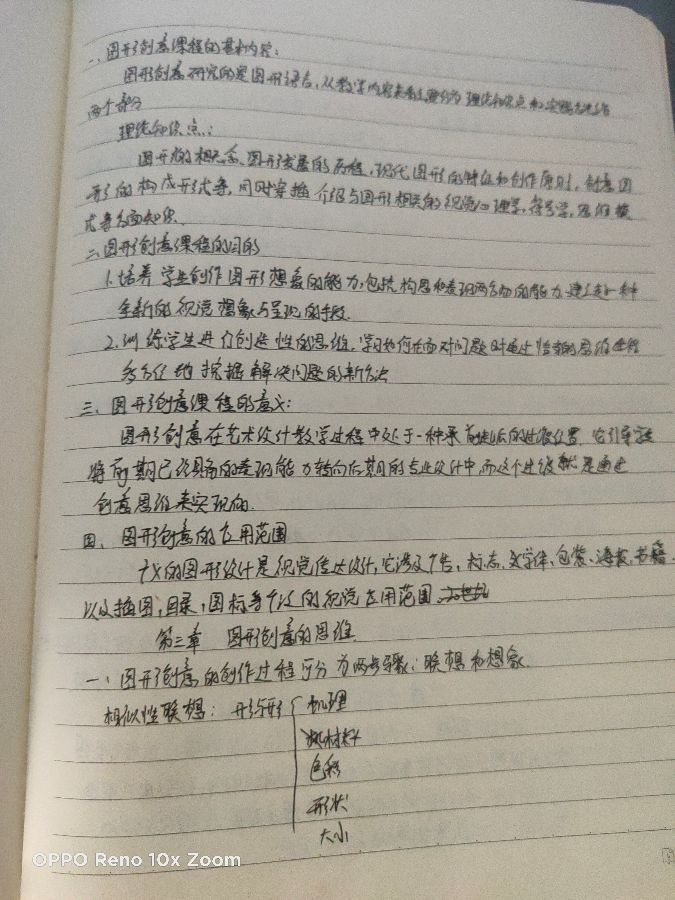 一、图形创意课程的基本内容:
图形创意研究的是图形语言,从教学内容来看主要分为理论知识点和实践
两个部分
理论知识点:
图形的相关概念、图形发展的历程,现代图形的特征和创作原则,创意图
形的构成形式等,同时穿插介绍与图形相关的视觉心理学,符号学,思维模
式等方面知识.
二、图形创意课程的目的
1.培养学生创作图形想象的能力,包括构思和表现两方面的能力,建立起一种
全新的视觉想象与呈现的手段.
2.训练学生进行创造性的思维,学习如何在面对问题时通过恰当的思维过程
多方位的挖掘解决问题的新方法
三、图形创意课程的意义:
图形创意在艺术设计教学过程中处于一种承前启后的过渡位置.它引导学生
将前期已经具备的表现能力转向后期的专业设计中,而这个过渡就是通过
创意思维来实现的.
四、图形创意的应用范围
广义的图形设计是视觉传达设计,它涉及广告、标志、文字体、包装、海报、书籍
以及插图,目录,图标等广泛的视觉应用范围
第三章 图形创意的思维.
一、图形创意的创作过程可分为两步骤:联想和想象.
相似性联想: 形与形 肌理
材料
色彩
形状
大小
OPPO Reno 10x Zoom